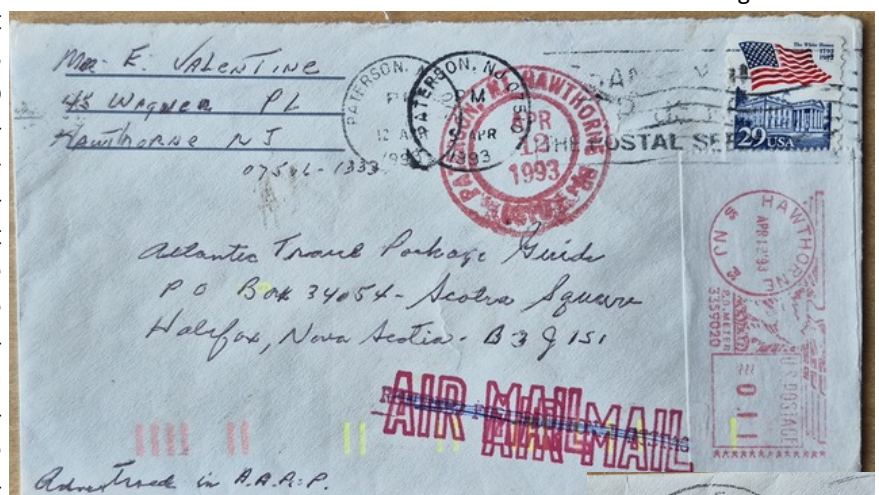 Mr. E. VALENTINE
45 WAGNER PL
HAWTHORNE NJ
07506-1333
PATERSON, NJ
PM
12 APR
1993
PATERSON, NJ
PM
APR
1993
HAWTHORNE
APR
12
1993
THE POSTAL SE
The White House
29 USA
HAWTHORNE
NJ
APR 12 '93
P.O. METER
3359020
U.S. POSTAGE
0.11
Atlantic Travel Package Guide
PO Box 34054 - Scotia Square
Halifax, Nova Scotia - B3J 1S1
AIR MAIL
AIR MAIL
in A.A.R.P.